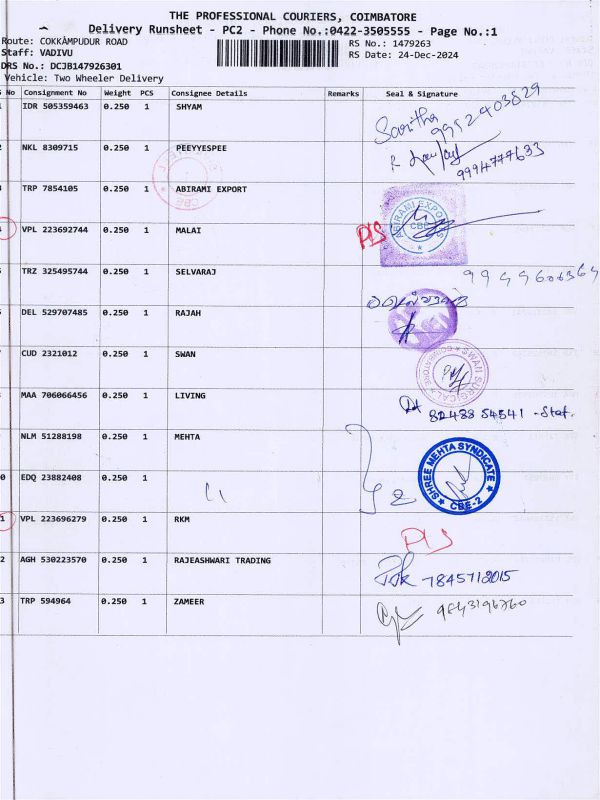 THE PROFESSIONAL COURIERS, COIMBATORE
Delivery Runsheet - PC2 - Phone No.:0422-3505555 - Page No.:1
Route: COKKAMPUDUR ROAD
RS No.: 1479263
Staff: VADIVU
RS Date: 24-Dec-2024
DRS No.: DCJB147926301
Vehicle: Two Wheeler Delivery
No Consignment No Weight PCS Consignee Details Remarks Seal & Signature
IDR 505359463 0.250 1 SHYAM Saritha 9952403829
NKL 8309715 0.250 1 PEEYYESPEE 9994777633
TRP 7854105 0.250 1 ABIRAMI EXPORT ABIRAMI EXPORTS CBE
VPL 223692744 0.250 1 MALAI P/S
TRZ 325495744 0.250 1 SELVARAJ 9944600364
DEL 529707485 0.250 1 RAJAH
CUD 2321012 0.250 1 SWAN SWAN SURGICAL COIMBATORE
MAA 706066456 0.250 1 LIVING 82488 54541
NLM 51288198 0.250 1 MEHTA SHREE MEHTA SYNDICATE CBE-2
0 EDQ 23882408 0.250 1 2
1 VPL 223696279 0.250 1 RKM P/S
2 AGH 530223570 0.250 1 RAJEASHWARI TRADING 7845712015
3 TRP 594964 0.250 1 ZAMEER 9843196760